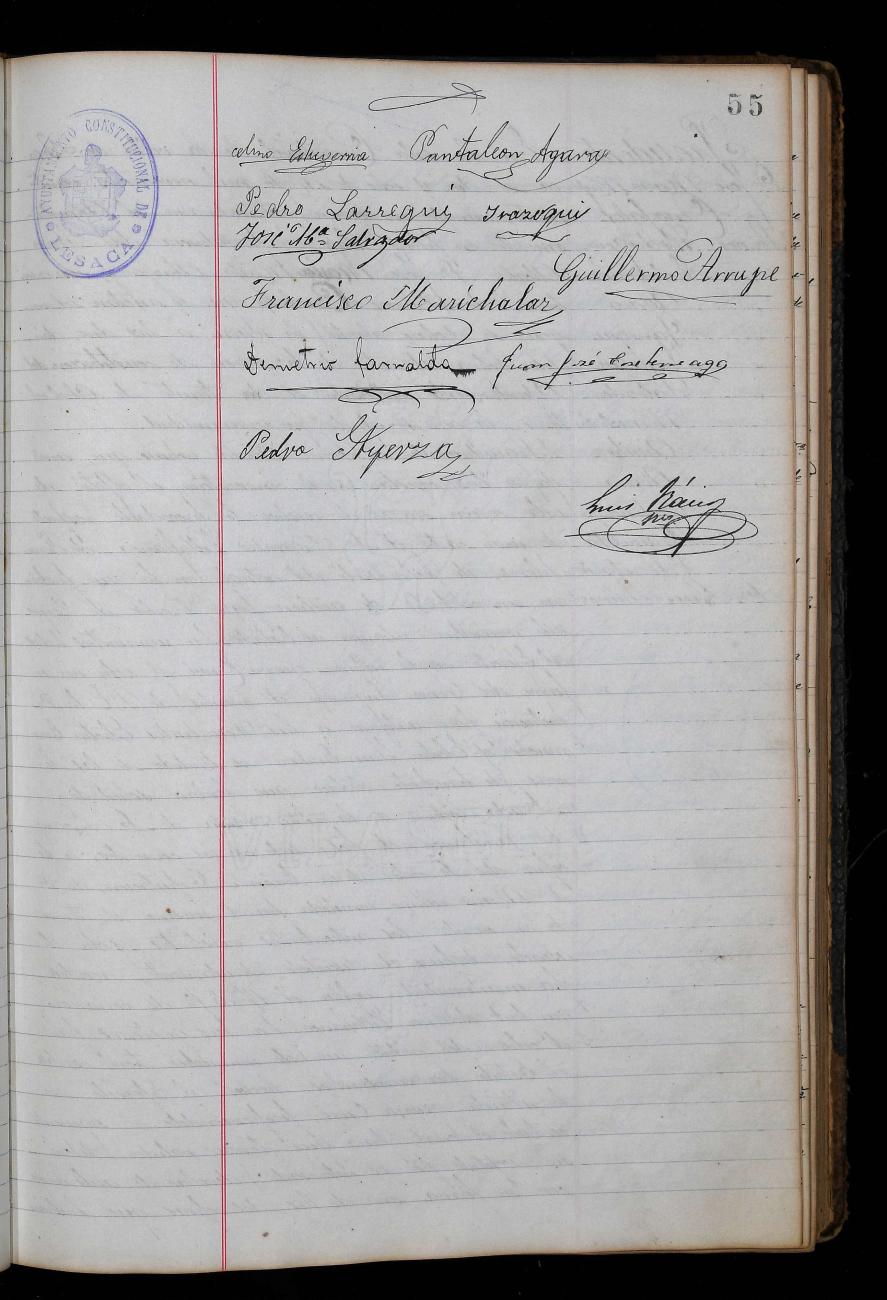 55
AYUNTAMIENTO CONSTITUCIONAL DE LESACA
celino Echeverria Pantaleon Agara
Pedro Larregui Irazoqui
José Mª Salvador
Guillermo Arrupe
Francisco Marichalar
Demetrio
Juan José
Pedro
Luis